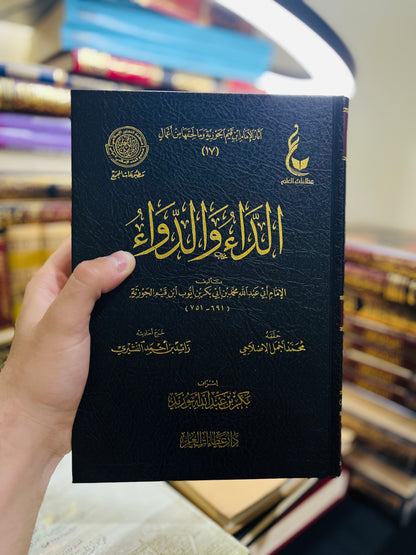 آثار الإمام ابن قيم الجوزية وما لحقها من أعمال
(١٧)
عطاءات العلم
مطبوعات المجمع
الداء والدواء
تأليف
الإمام أبي عبد الله محمد بن أبي بكر بن أيوب ابن قيم الجوزية
(٦٩١ - ٧٥١)
حققه
محمد أجمل الإصلاحي
خرج أحاديثه
زائد بن أحمد النشيري
إشراف
بكر بن عبد الله أبو زيد
دار عطاءات العلم